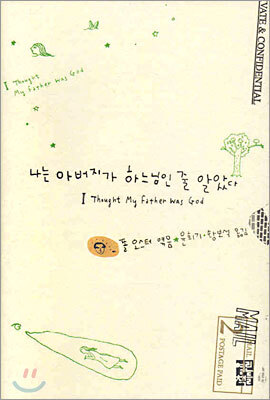 PRIVATE & CONFIDENTIAL
I Thought
My Father Was God
나는 아버지가 하느님인 줄 알았다
I Thought My Father Was God
폴 오스터 엮음 * 윤희기·황보석 옮김
MAIL
2
POSTAGE PAID
yes